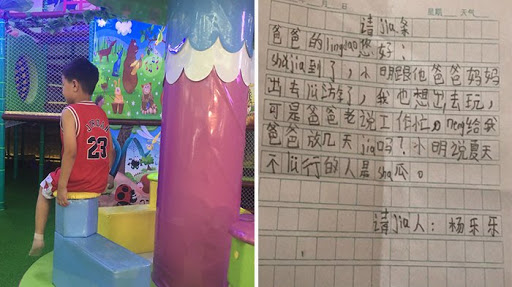 23
月 日 星期 天气
请jia条
爸爸的lingdao您好：
shǔjia到了，小明跟他爸爸妈妈
出去lǚ游了，我也想出去玩，
可是爸爸老说工作忙，neng给我
爸爸放几天jia吗？小明说夏天
不lǚ行的人是sha瓜。
请jia人：杨乐乐